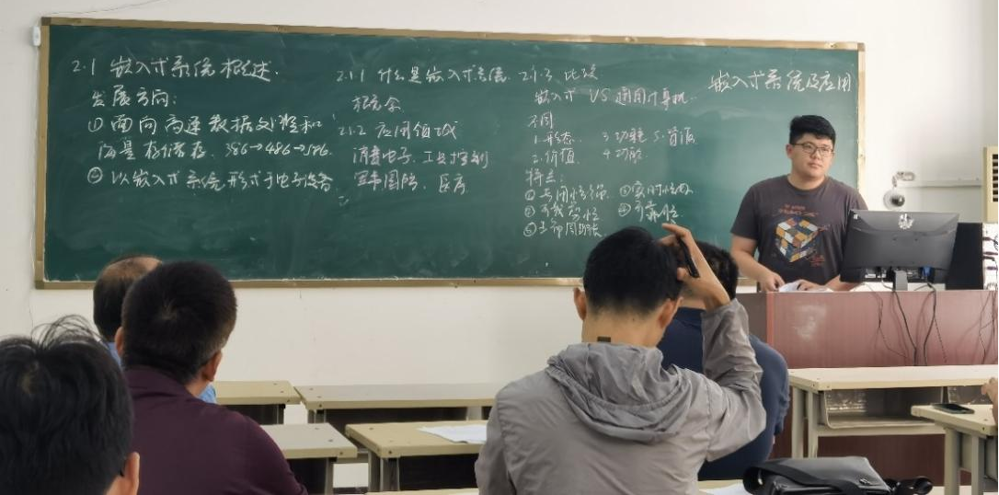 2.1 嵌入式系统概述.
发展方向:
① 面向高速数据处理和
海量存储存. 386→486→586.
② 以嵌入式系统形式于电子设备
2.1.1 什么是嵌入式系统.
概念
2.1.2 应用领域
消费电子. 工业控制
军事国防. 医疗
2.1.3. 比较
嵌入式 VS 通用计算机.
不同
1.形态 3.功耗 5.资源
2.价值 4.功能
特点:
① 专用性强. ② 实时性好
③ 可裁剪性 ④ 可靠性
⑤ 生命周期长
嵌入式系统及应用